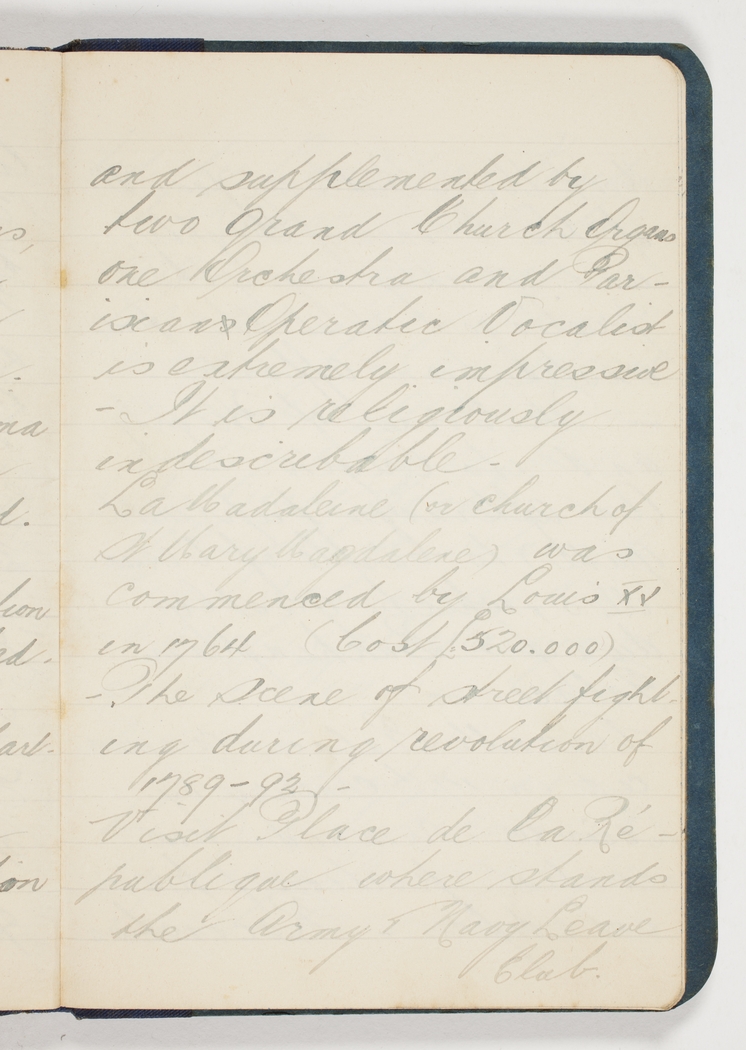 and supplemented by
two grand Church Organs
one Orchestra and Par-
isian Operatic Vocalist
is extremely impressive
- It is religiously
indescribable -
La Madaleine (or church of
St Mary Magdalene) was
commenced by Louis XV
in 1764 (Cost £520.000)
- The scene of street fight-
ing during revolution of
1789-92 -
Visit Place de la Ré-
publique where stands
the Army & Navy Leave
Club.